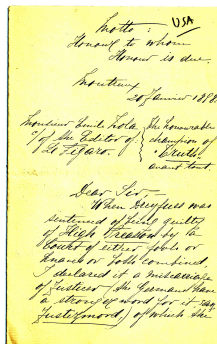 Motto:
USA
Honour to whom
Honour is due.
Montreux
20 Janvier 1898
Monsieur Emile Zola
c/o the Editor of
Le Figaro.
The honourable
champion of
"Truth"
avant tout.
Dear Sir,
When Dreyfuss was
sentenced of being guilty
of High Treason by a
Court of either fools or
Knaves or both combined,
I declared it a miscarriage
of Justice (the Germans have
a stronger word for it say
Justizmord) of which the